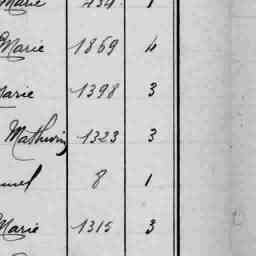 Marie 434 1
Marie 1869 4
Marie 1398 3
Mathurin 1323 3
8 1
Marie 1315 3